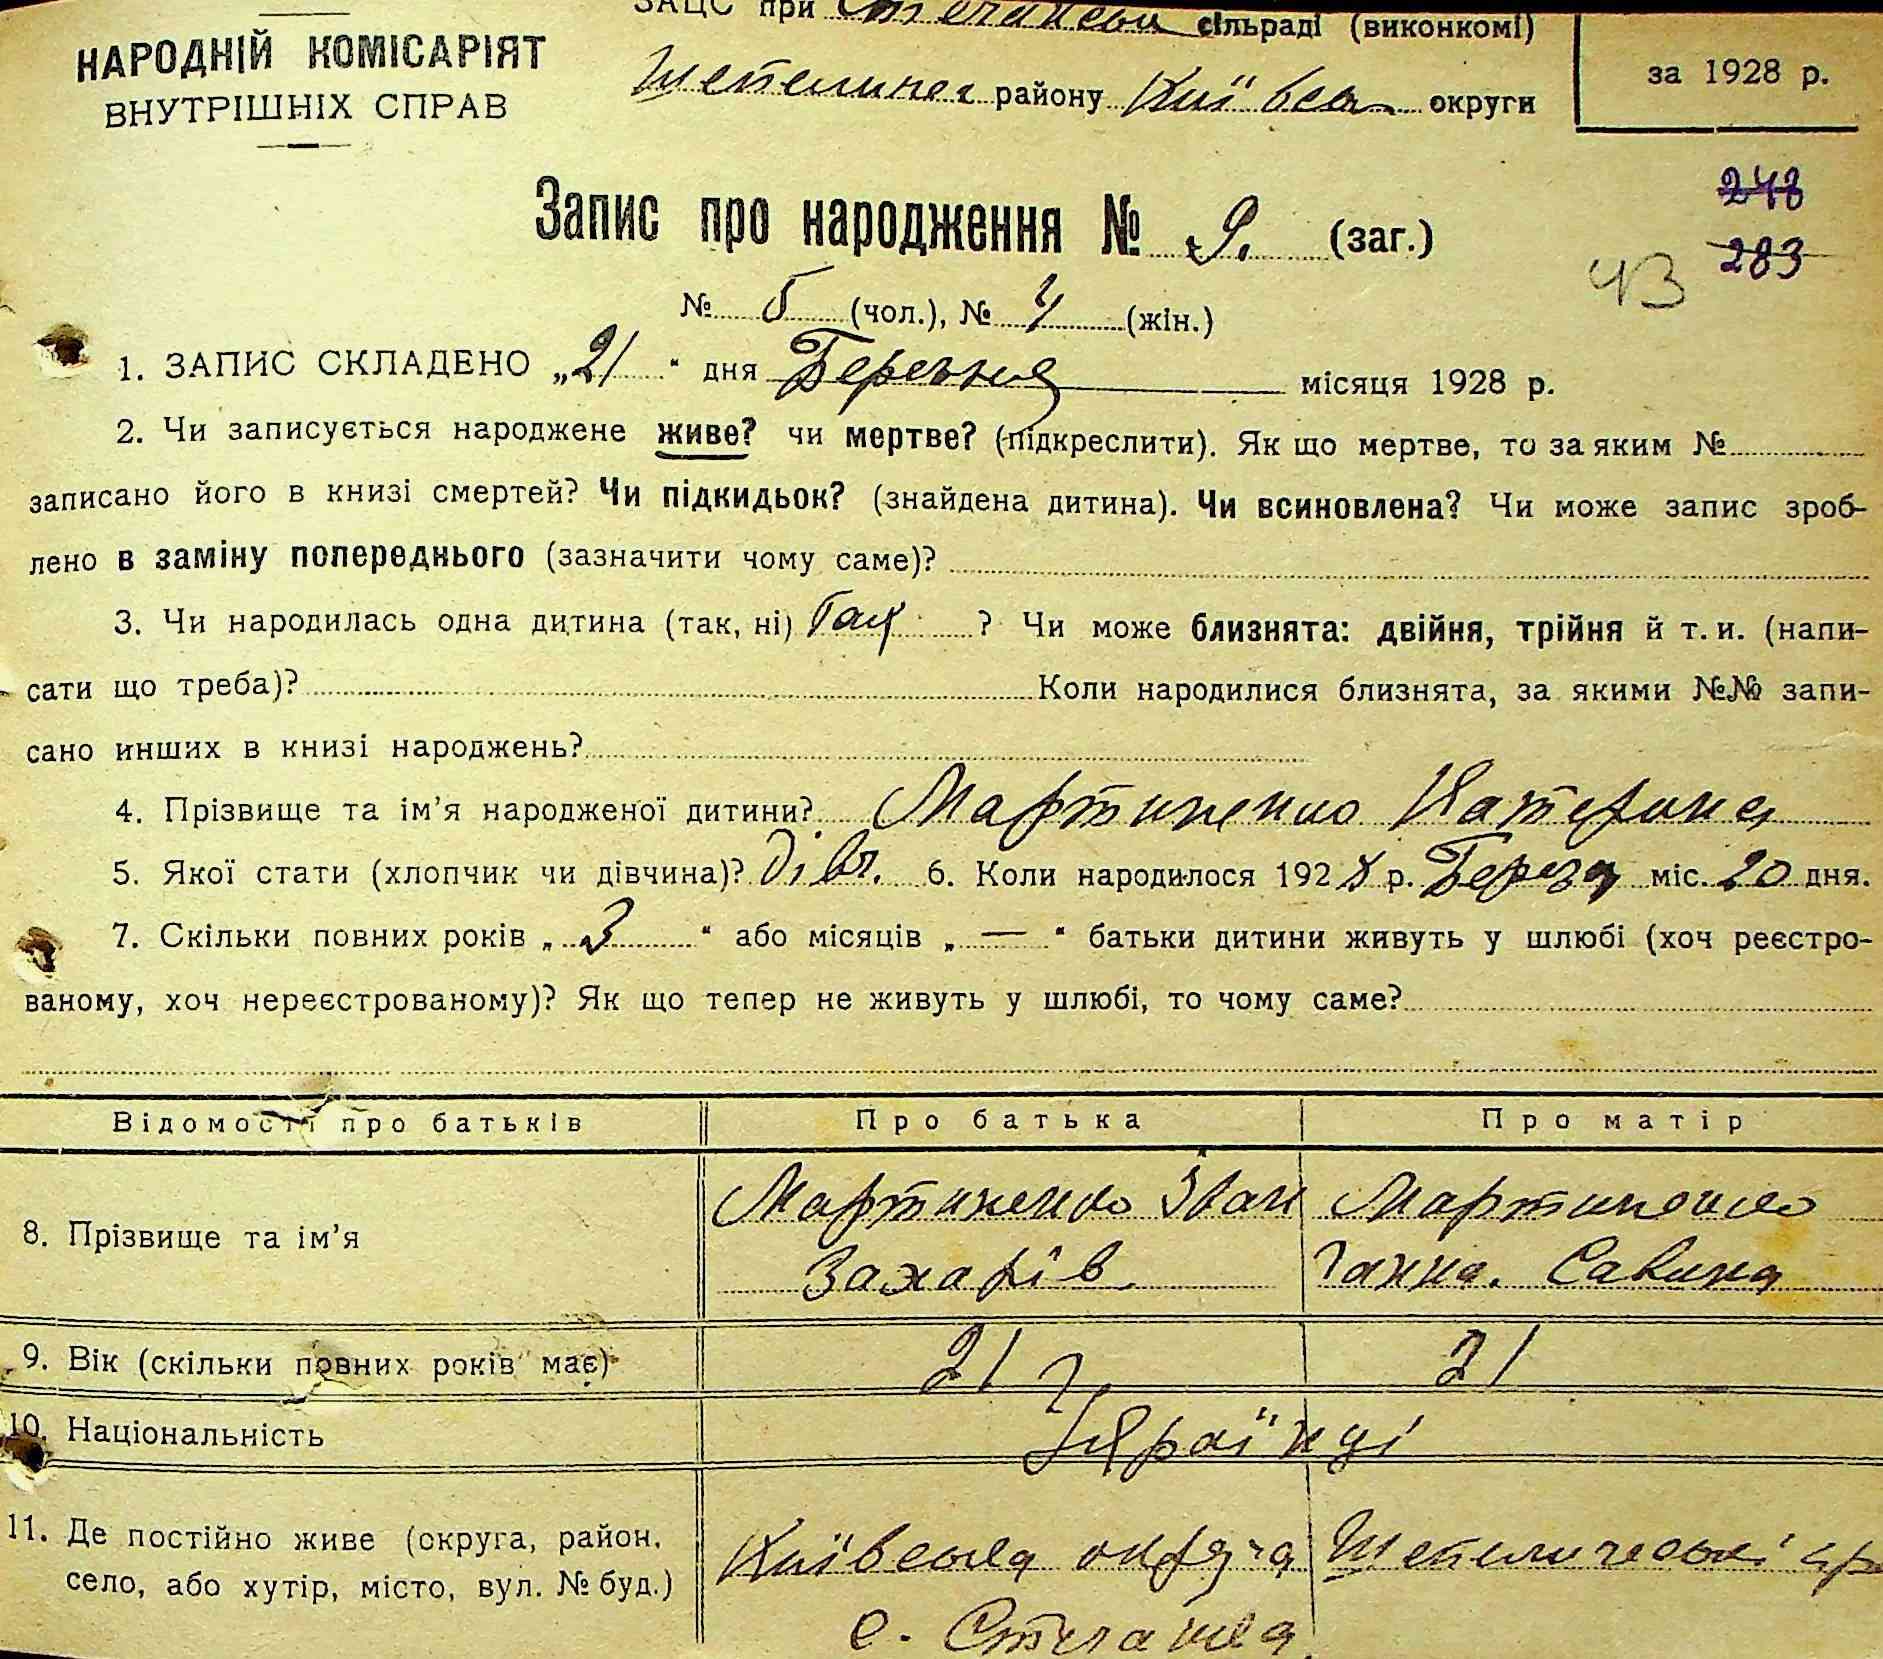 НАРОДНІЙ КОМІСАРІЯТ
ВНУТРІШНІХ СПРАВ
ЗАЦС при сільраді (виконкомі)
району Київськ округи
за 1928 р.
Запис про народження № 9. (заг.)
248
283
43
№ 5 (чол.), № 4 (жін.)
1. ЗАПИС СКЛАДЕНО „21" дня Березня місяця 1928 р.
2. Чи записується народжене живе? чи мертве? (підкреслити). Як що мертве, то за яким №
записано його в книзі смертей? Чи підкидьок? (знайдена дитина). Чи всиновлена? Чи може запис зроб-
лено в заміну попереднього (зазначити чому саме)?
3. Чи народилась одна дитина (так, ні) Так ? Чи може близнята: двійня, трійня й т. и. (напи-
сати що треба)? Коли народилися близнята, за якими №№ запи-
сано инших в книзі народжень?
4. Прізвище та ім'я народженої дитини? Мартиненко Катерина
5. Якої стати (хлопчик чи дівчина)? Дівч. 6. Коли народилося 1928 р. Березн міс. 20 дня.
7. Скільки повних років „3" або місяців „—" батьки дитини живуть у шлюбі (хоч реєстро-
ваному, хоч нереєстрованому)? Як що тепер не живуть у шлюбі, то чому саме?
Відомості про батьків Про батька Про матір
8. Прізвище та ім'я
Мартиненко Іван
Захарів
Мартиненко
Ганна. Савина
9. Вік (скільки повних років має) 21 р 21
10. Національність Українці
11. Де постійно живе (округа, район,
село, або хутір, місто, вул. № буд.)
Київська округа
с. Стечанка